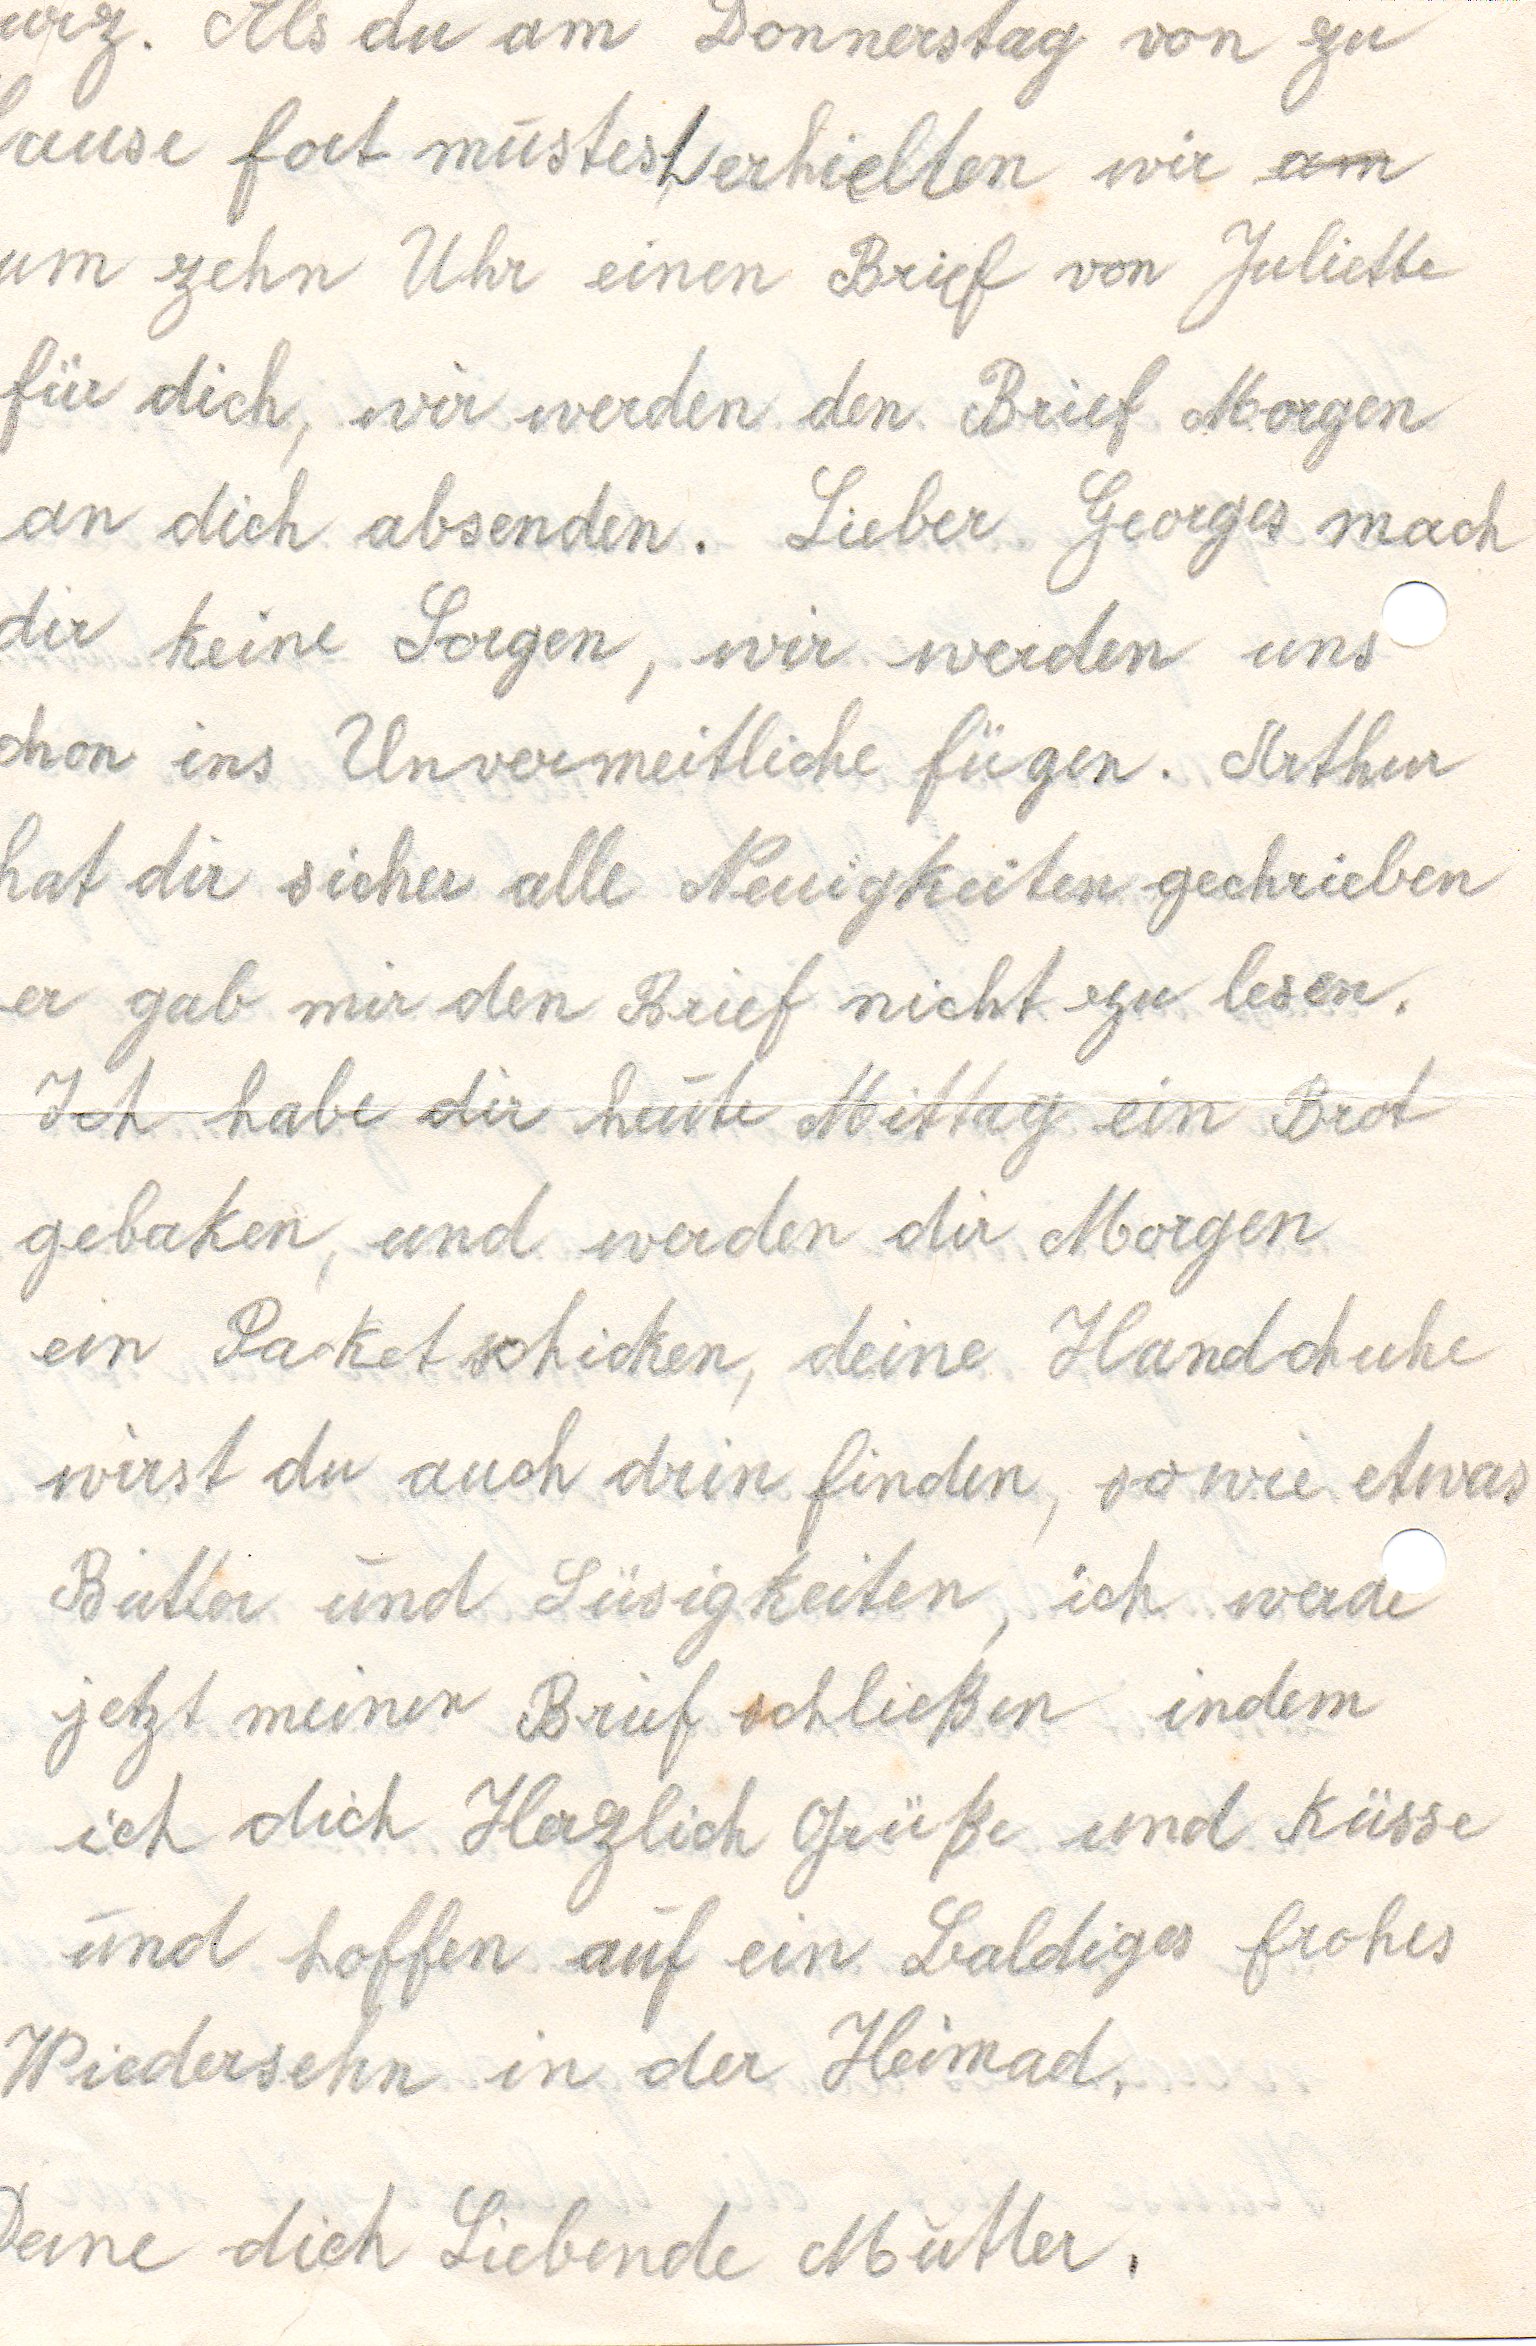 urz. Als du am Donnerstag von zu
Hause fort mustest erhielten wir am
um zehn Uhr einen Brief von Juliette
für dich, wir werden den Brief Morgen
an dich absenden. Lieber Georges mach
dir keine Sorgen, wir werden uns
chon ins Unvermeitliche fügen. Arthur
hat dir sicher alle Neuigkeiten gechrieben
er gab mir den Brief nicht zu lesen.
Ich habe dir heute Mittag ein Brot
gebaken, und werden dir Morgen
ein Packet schicken, deine Handchuhe
wirst du auch drin finden, sowie etwas
Butter und Süsigkeiten, ich werde
jetzt meinen Brief schließen indem
ich dich Herzlich Grüße und Küsse
und hoffen auf ein Baldiges frohes
Wiedersehn in der Heimad.
Deine dich Liebende Mutter.